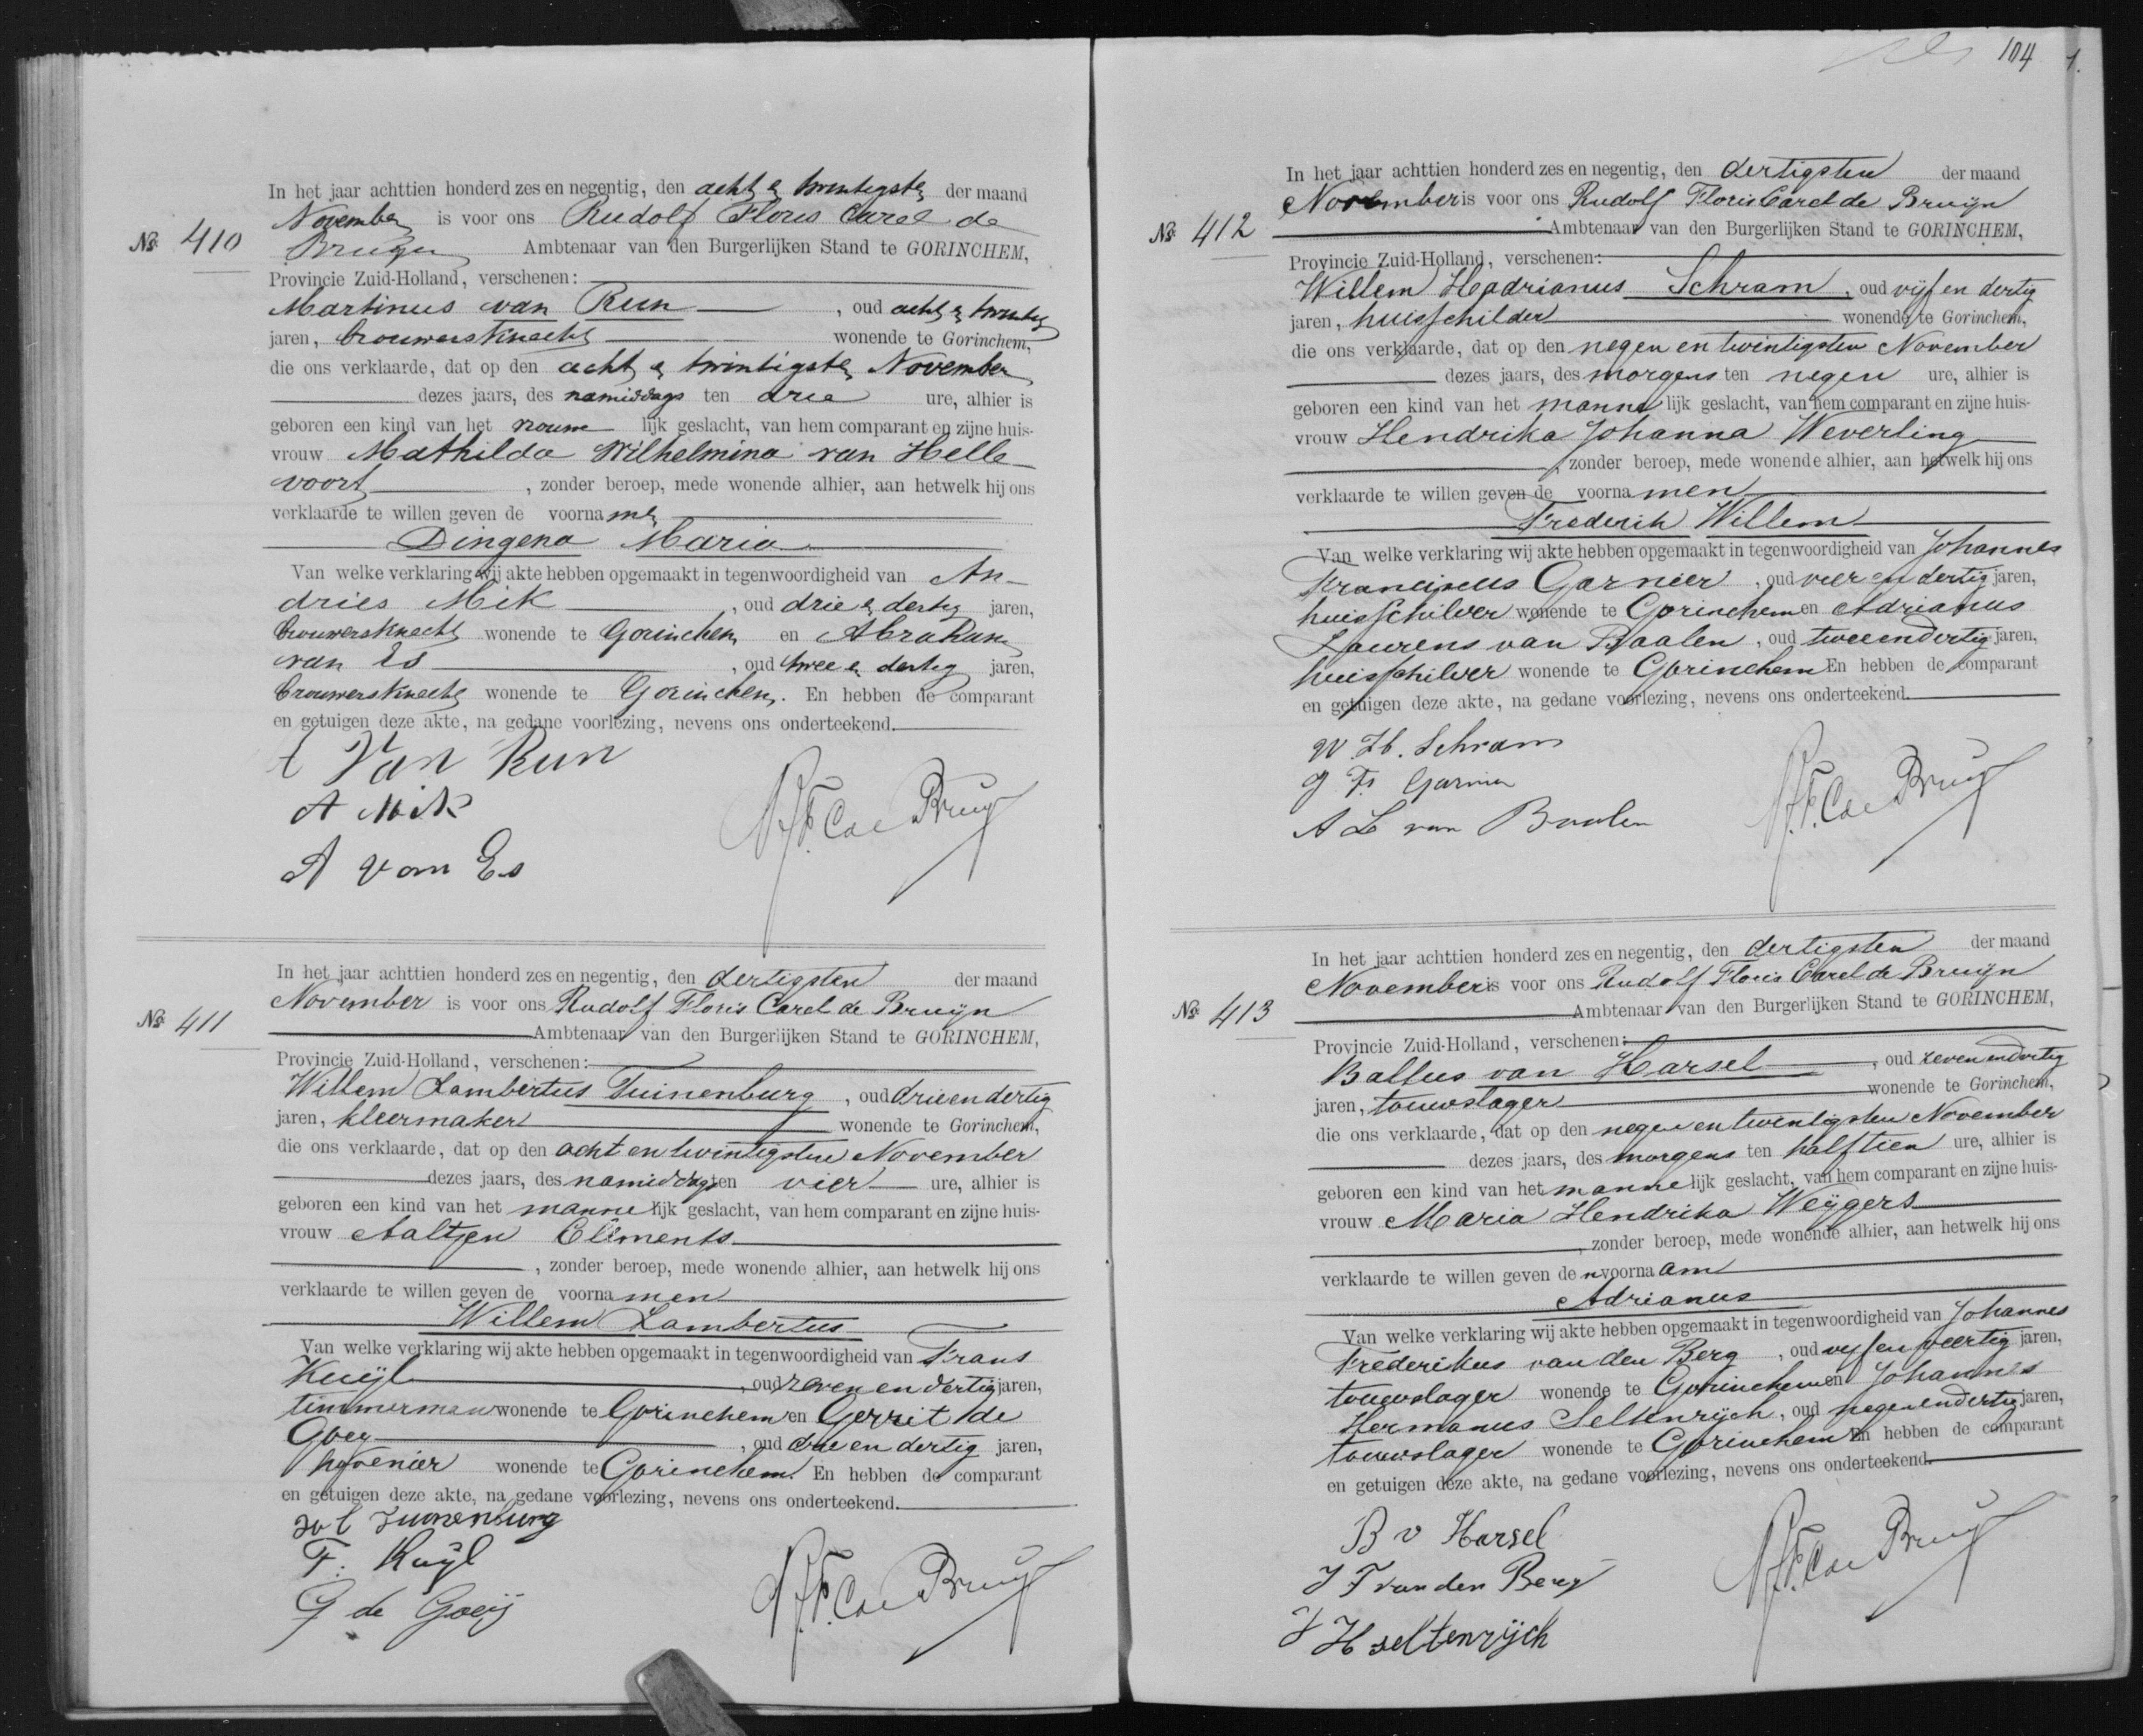 In het jaar achttien honderd zes en negentig, den acht en twintigsten der maand
November is voor ons Rudolf Floris Carel de
Nº 410
Bruijn Ambtenaar van den Burgerlijken Stand te GORINCHEM,
Provincie Zuid-Holland, verschenen:
Martinus van Run, oud acht en twintig
jaren, brouwersknecht wonende te Gorinchem,
die ons verklaarde, dat op den acht en twintigsten November
dezes jaars, des namiddags ten drie ure, alhier is
geboren een kind van het vrouwelijk geslacht, van hem comparant en zijne huis-
vrouw Mathilda Wilhelmina van Helle-
voort, zonder beroep, mede wonende alhier, aan hetwelk hij ons
verklaarde te willen geven de voornamen
Dingena Maria
Van welke verklaring wij akte hebben opgemaakt in tegenwoordigheid van An-
dries Mik, oud drie en dertig jaren,
brouwersknecht wonende te Gorinchem en Abraham
van Es, oud twee en dertig jaren,
brouwersknecht wonende te Gorinchem. En hebben de comparant
en getuigen deze akte, na gedane voorlezing, nevens ons onderteekend.
Van Run
A Mik
R.F.C. de Bruijn
A van Es
In het jaar achttien honderd zes en negentig, den dertigsten der maand
November is voor ons Rudolf Floris Carel de Bruijn
Nº 411
Ambtenaar van den Burgerlijken Stand te GORINCHEM,
Provincie Zuid-Holland, verschenen:
Willem Lambertus Tuinenburg, oud drie en dertig
jaren, kleermaker wonende te Gorinchem,
die ons verklaarde, dat op den acht en twintigsten November
dezes jaars, des namiddags ten vier ure, alhier is
geboren een kind van het mannelijk geslacht, van hem comparant en zijne huis-
vrouw Aaltjen Clements
, zonder beroep, mede wonende alhier, aan hetwelk hij ons
verklaarde te willen geven de voornamen
Willem Lambertus
Van welke verklaring wij akte hebben opgemaakt in tegenwoordigheid van Frans
Kuijl, oud zeven en dertig jaren,
timmerman wonende te Gorinchem en Gerrit de
Goey, oud drie en dertig jaren,
hovenier wonende te Gorinchem. En hebben de comparant
en getuigen deze akte, na gedane voorlezing, nevens ons onderteekend.
W L Tuinenburg
F. Kuijl
R.F.C. de Bruijn
G de Goeij
104 1.
In het jaar achttien honderd zes en negentig, den dertigsten der maand
November is voor ons Rudolf Floris Carel de Bruijn
Nº 412
Ambtenaar van den Burgerlijken Stand te GORINCHEM,
Provincie Zuid-Holland, verschenen:
Willem Hadrianus Schram, oud vijf en dertig
jaren, huisschilder wonende te Gorinchem,
die ons verklaarde, dat op den negen en twintigsten November
dezes jaars, des morgens ten negen ure, alhier is
geboren een kind van het mannelijk geslacht, van hem comparant en zijne huis-
vrouw Hendrika Johanna Weverling
, zonder beroep, mede wonende alhier, aan hetwelk hij ons
verklaarde te willen geven de voornamen
Frederik Willem
Van welke verklaring wij akte hebben opgemaakt in tegenwoordigheid van Johannes
Franciscus Garnier, oud vier en dertig jaren,
huisschilder wonende te Gorinchem en Adrianus
Laurens van Baalen, oud twee en dertig jaren,
huisschilder wonende te Gorinchem En hebben de comparant
en getuigen deze akte, na gedane voorlezing, nevens ons onderteekend.
W H. Schram
J F. Garnier
R.F.C. de Bruijn
A L van Baalen
In het jaar achttien honderd zes en negentig, den dertigsten der maand
November is voor ons Rudolf Floris Carel de Bruijn
Nº 413
Ambtenaar van den Burgerlijken Stand te GORINCHEM,
Provincie Zuid-Holland, verschenen:
Baltus van Harsel, oud zeven en dertig
jaren, touwslager wonende te Gorinchem,
die ons verklaarde, dat op den negen en twintigsten November
dezes jaars, des morgens ten half tien ure, alhier is
geboren een kind van het mannelijk geslacht, van hem comparant en zijne huis-
vrouw Maria Hendrika Weijgers
, zonder beroep, mede wonende alhier, aan hetwelk hij ons
verklaarde te willen geven den voornaam
Adrianus
Van welke verklaring wij akte hebben opgemaakt in tegenwoordigheid van Johannes
Frederikus van den Berg, oud vijf en veertig jaren,
touwslager wonende te Gorinchem en Johannes
Hermanus Seltenrijch, oud negen en dertig jaren,
touwslager wonende te Gorinchem En hebben de comparant
en getuigen deze akte, na gedane voorlezing, nevens ons onderteekend.
B v Harsel
J F van den Berg
R.F.C. de Bruijn
J H Seltenrijch